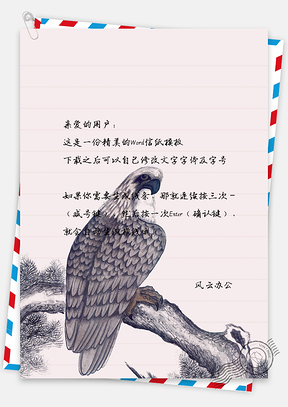 亲爱的用户：
这是一份精美的Word信纸模板
下载之后可以自己修改文字字体及字号
如果你需要生成线条，那就连续按三次－
（减号键），然后按一次Enter（确认键），
就会
风云办公